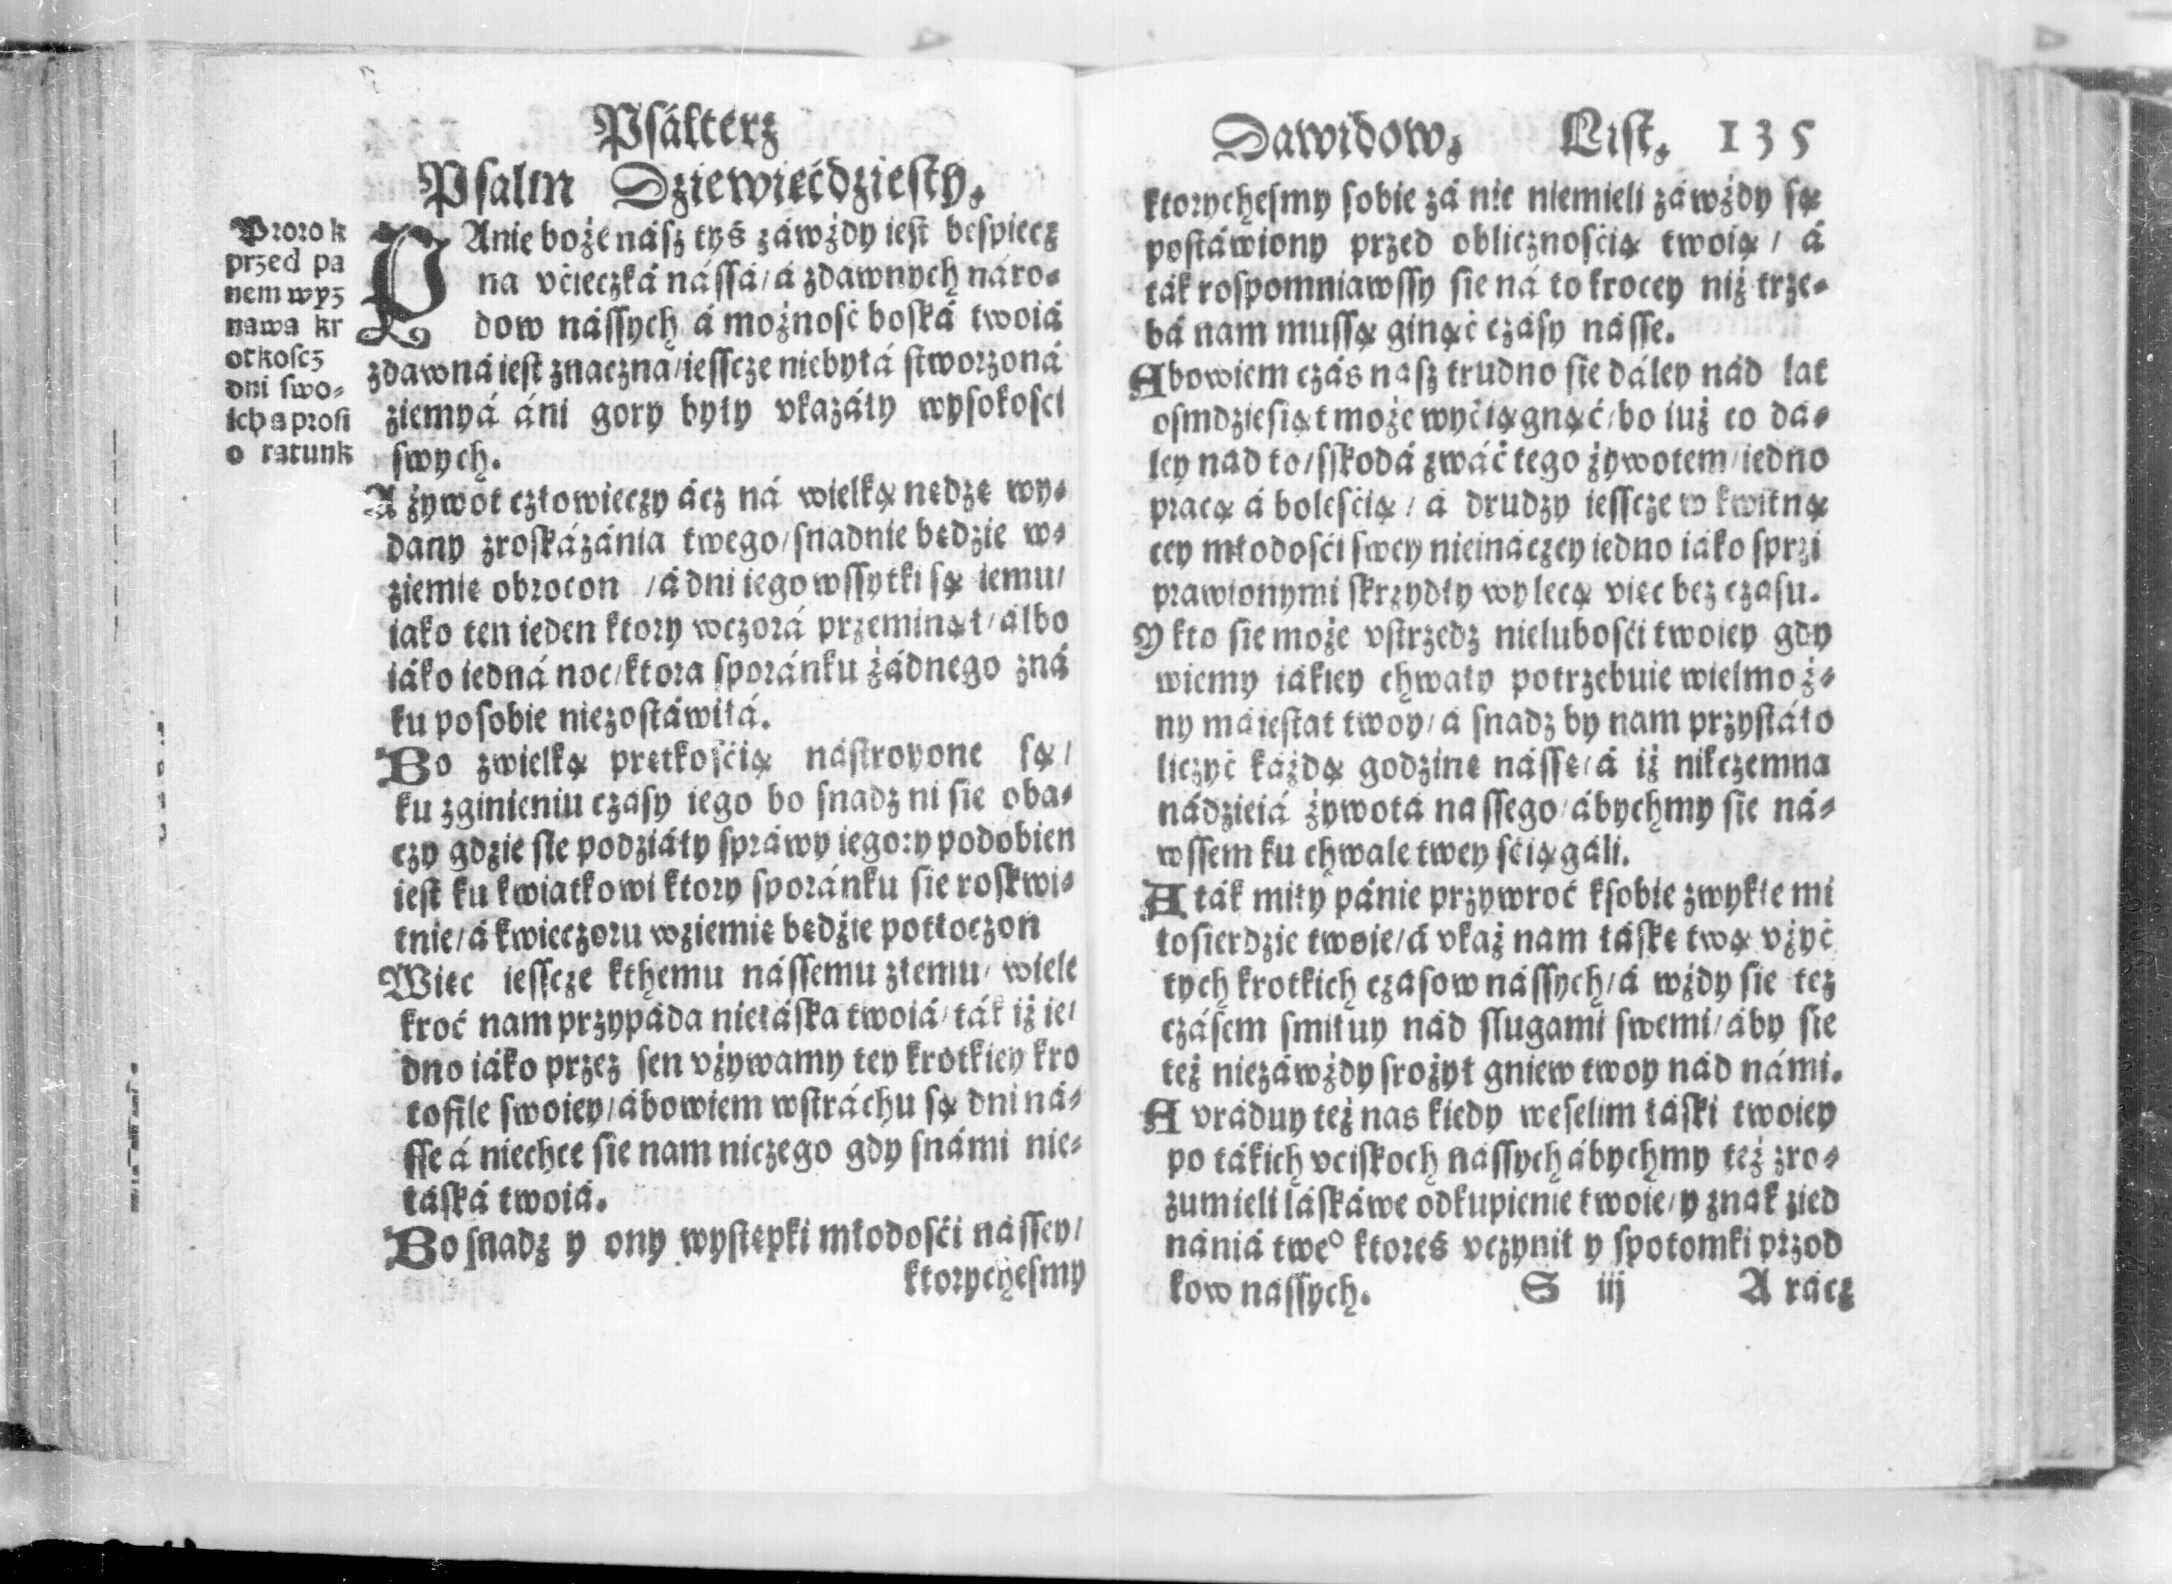 Psálterz
Psalm Dziewięćdziesty.
Proro k
przed pa
nem wyz
nawa kr
otkoscz
dni swo-
ich a prosi
o ratunk
PAnie boże nász tyś záwżdy iest bespiecz
na vćieczká nássá/á zdawnych náro-
dow nássych á możność boská twoiá
zdawná iest znaczna/iesscze niebyłá stworzoná
ziemyá áni gory były vkazáły wysokosci
swych.
A żywot człowieczy ácz ná wielką nędzę wy-
dany zroskázánia twego/snadnie będzie w-
ziemię obrocon /á dni iego wssytki są iemu/
iako ten ieden ktory wczorá przeminął/álbo
iáko iedná noc/ktora sporánku żádnego zná
ku posobie niezostáwiłá.
Bo zwielką prętkośćią nástroyone są/
ku zginieniu czasy iego bo snadz ni sie oba-
czy gdzie sie podziáły spráwy iego:y podobien
iest ku kwiatkowi ktory sporánku sie roskwi-
tnie/á kwieczoru wziemię będźie potłoczon
Więc iesscze kthemu nássemu złemu/ wiele
kroć nam przypáda niełáska twoiá/ták iż ie/
dno iáko przez sen vżywamy tey krotkiey kro
tofile swoiey/ábowiem wstráchu są dni ná-
sse á niechce sie nam niczego gdy snámi nie-
łáská twoiá.
Bo snadz y ony występki młodośći nássey/
ktorychesmy
Dawidow. List. 135
ktorychesmy sobie zá nic niemieli záwżdy są
postáwiony przed oblicznośćią twoią/ á
ták rospomniawssy sie ná to krocey niż trze-
bá nam mussą ginąć czásy násse.
Abowiem czás nasz trudno sie dáley nád lat
osmdziesiąt może wyćiągnąć/bo iuż co da-
ley nad to/sskodá zwáć tego żywotem/iedno
pracą á bolesćią/á drudzy iesscze w kwitną
cey młodośći swey nieináczey iedno iáko sprzi
prawionymi skrzydły wylecą więc bez czasu.
Y kto sie może vstrzedz nielubośći twoiey gdy
wiemy iákiey chwały potrzebuie wielmoż-
ny máiestat twoy/á snadz by nam przystáło
liczyć káżdą godzinę nássę/á iż nikczemna
nádzieiá żywotá nassego/ábychmy sie ná-
wssem ku chwale twey śćiągáli.
A ták miły pánie przywroć ksobie zwykłe mi
łosierdzie twoie/á vkaż nam łáskę twą vżyć
tych krotkich czasow nássych/á wżdy sie też
czásem smiłuy nád slugami swemi/áby sie
też niezáwżdy srożył gniew twoy nád námi.
A vráduy też nas kiedy weselim łáski twoiey
po tákich vciskoch nássych ábychmy też zro-
zumieli láskáwe odkupienie twoie/y znak zied
nániá tweº ktoreś vczynił y spotomki przod
kow nássych. S iij A rácz